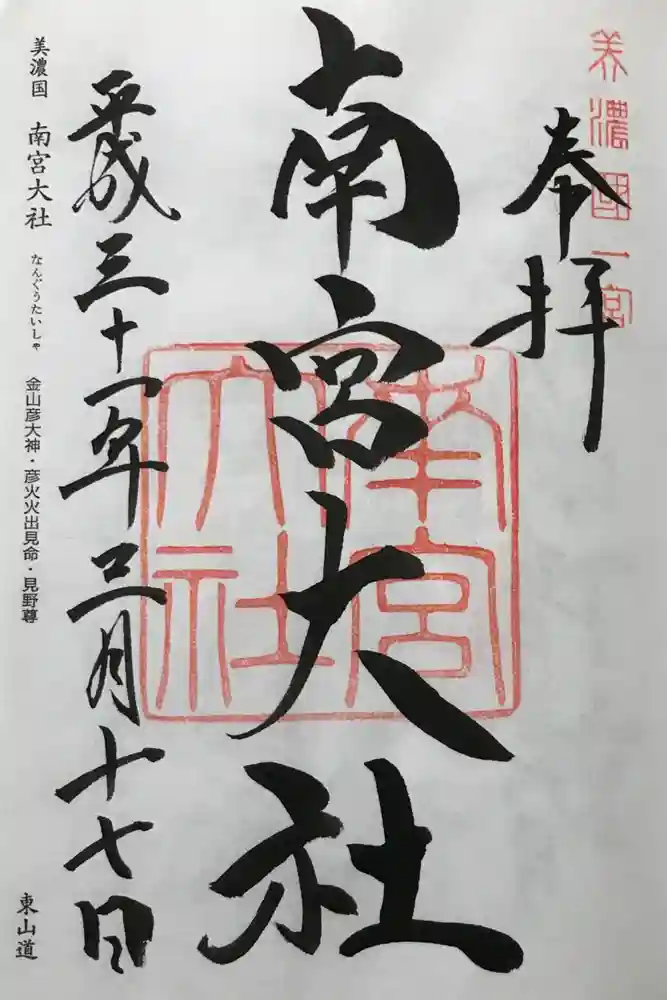 美濃國一宮
奉拝
南宮大社
南宮
大社
平成三十一年四月十七日
美濃国 南宮大社 なんぐうたいしゃ 金山彦大神・彦火火出見命・見野尊 東山道